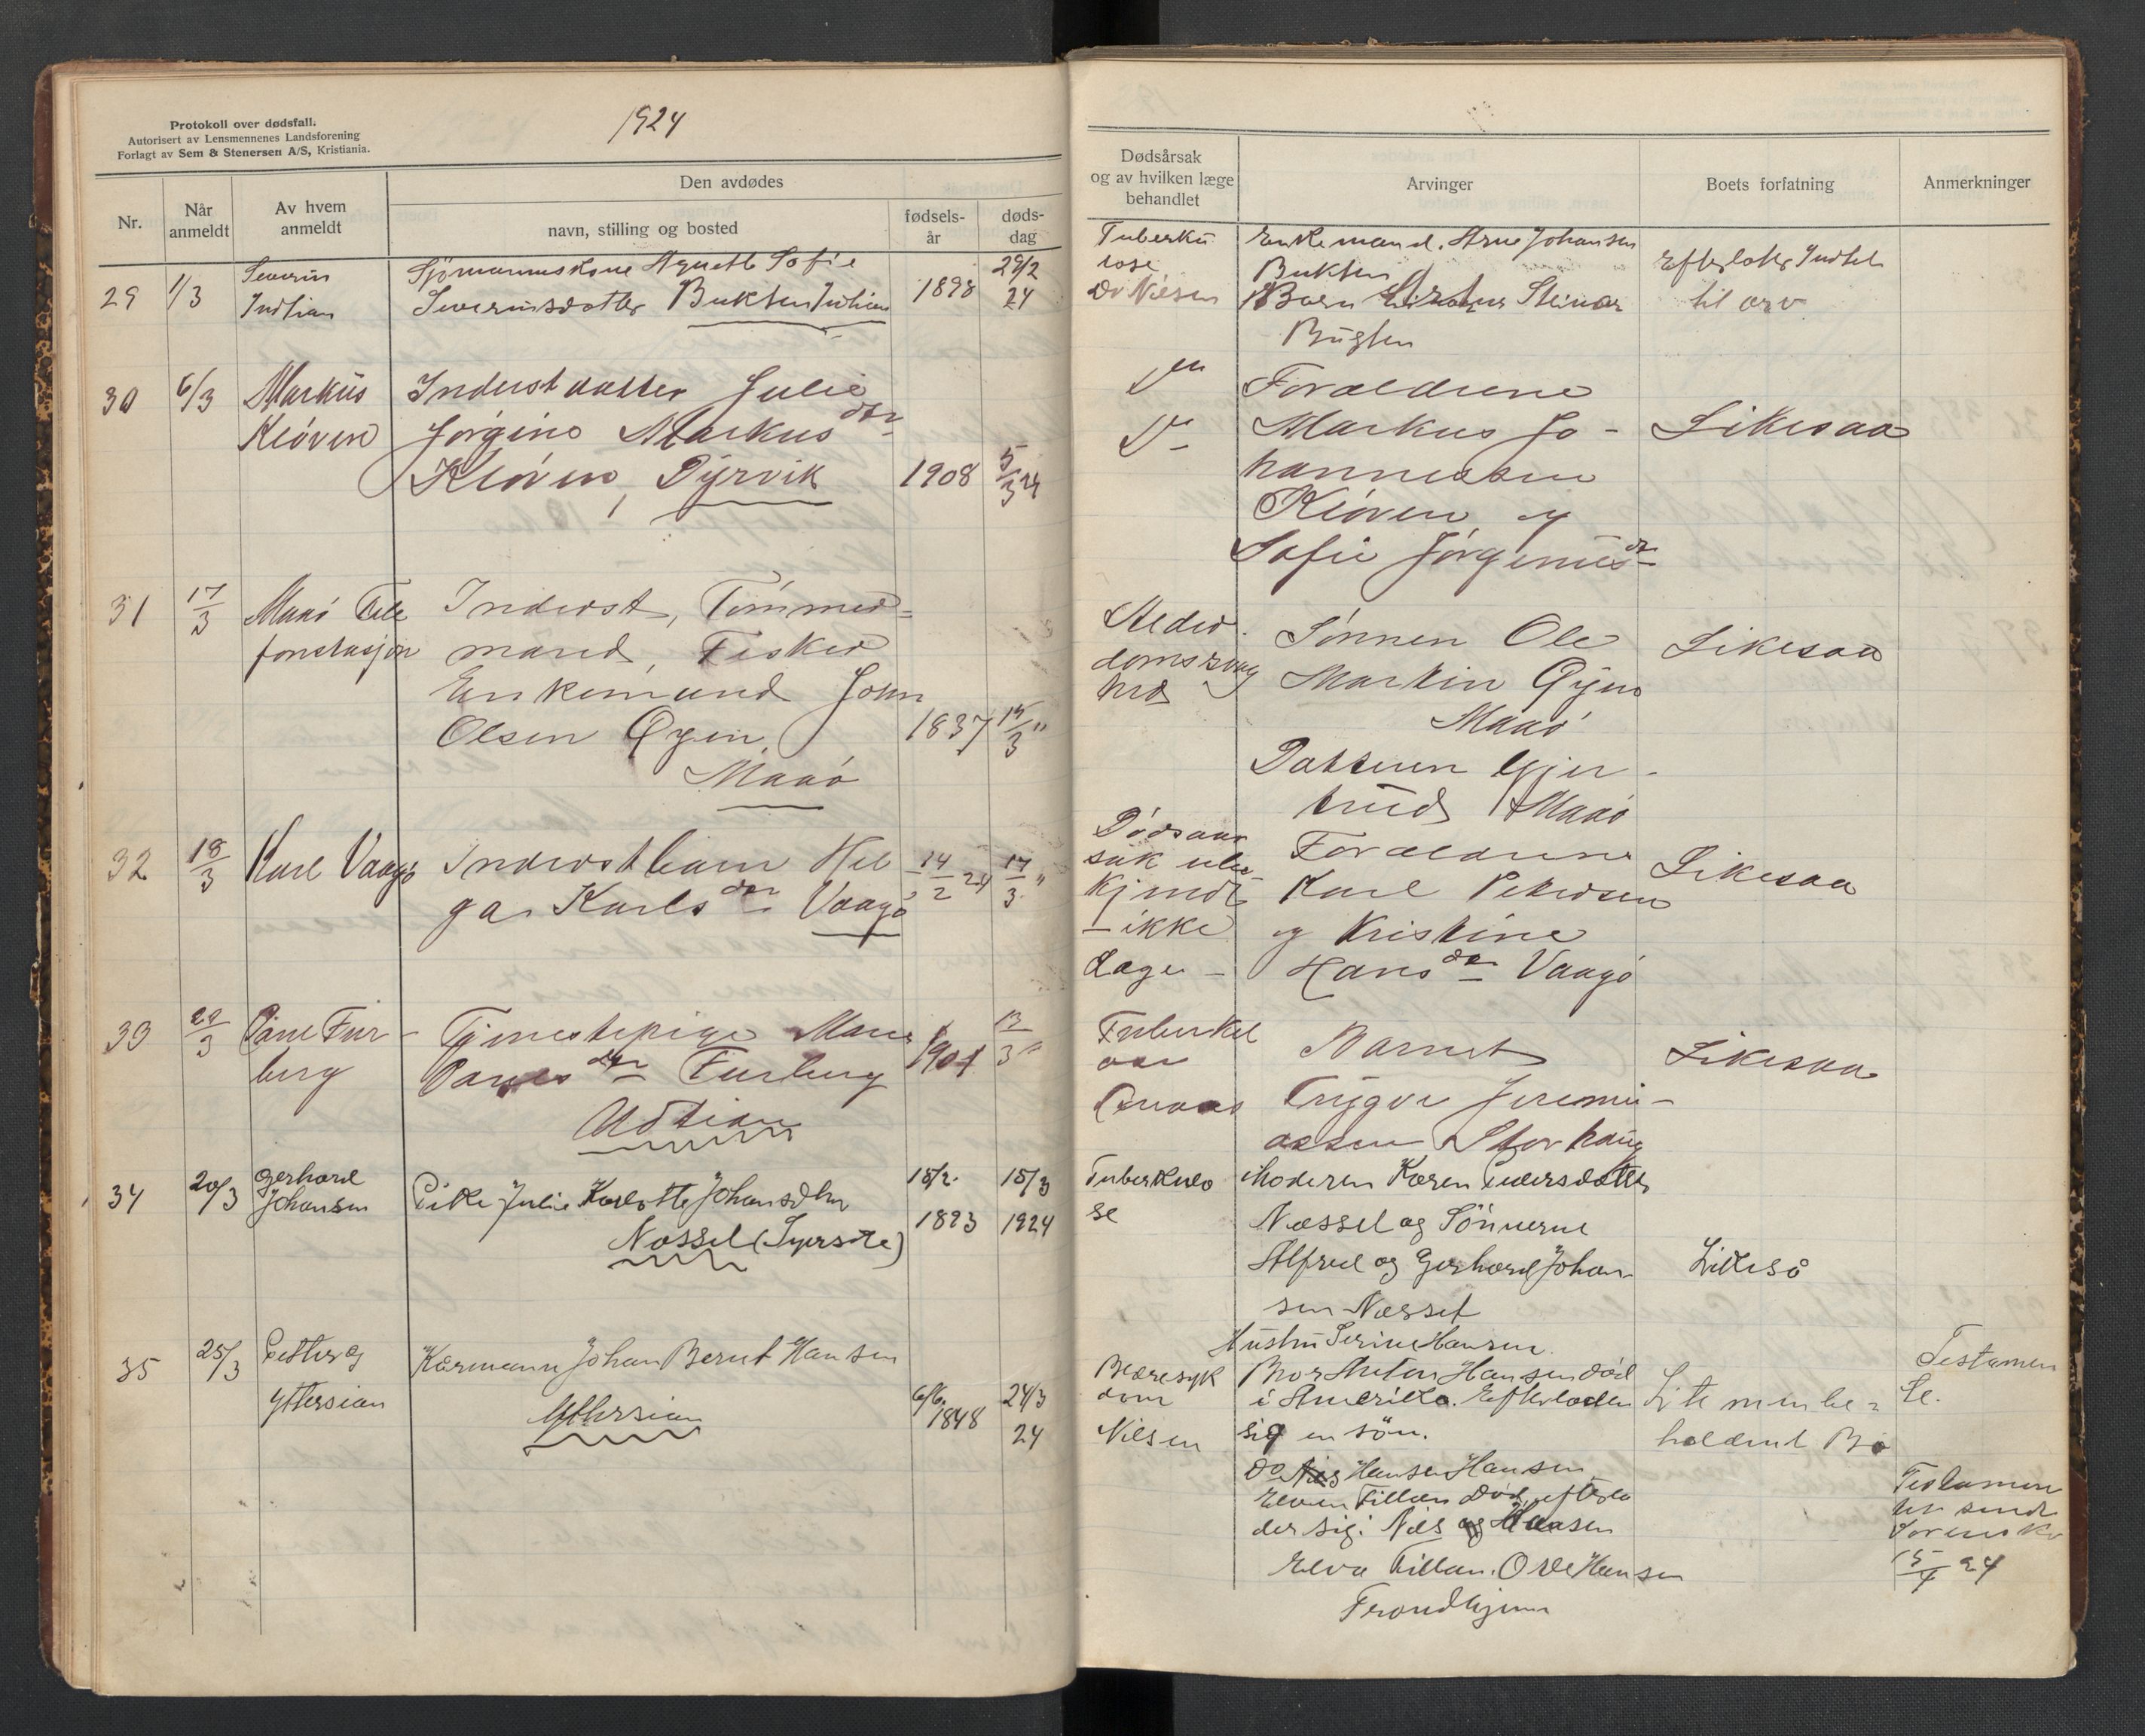 Protokoll over dødsfall.
Autorisert av Lensmennenes Landsforening
Forlagt av Sem & Stenersen A/S, Kristiania.
1924
Nr.
Når anmeldt
Av hvem anmeldt
Den avdødes
navn, stilling og bosted
fødsels-år
døds-dag
Dødsårsak
og av hvilken læge
behandlet
Arvinger
Boets forfatning
Anmerkninger
29 1/3 Severin
Indtian
Sjømannskone Agnethe Sofie
Severinsdatter Bukten Indtian 1898 29/2
24
Tuberku
lose
Dr Nilsen
Enkemand. Arne Johansen
Bukten
Barn Steinar
Bugten
Efterlater Indtet
til arv
30 6/3 Markus
Kløven
Inderstdatter Julie
Jørgine Markusdtr
Kløven, Dyrvik 1908 5/3 24
Do
Do
Forældrene
Markus Jo-
hannessen
Kløven og
Sofie Jørgensdtr
Likesaa
31 17/3 Maaø Tele
fonstasjon
Inderst, Tømmer=
mand, Fisker
Enkemand John
Olsen Øyen, 1837 15/3 "
Maaø
Alder-
domssvag
hed
Sønnen Ole
Martin Øyen
Maaø
Datteren Gjer-
trud Maaø
Likesaa
32 18/3 Karl Vaagø
Inderstbarn Hel
ga Karlsdtr Vaagø 14/2 24 17/3 "
Dødsaar
sak ube
kjendt
- ikke
Læge -
Forældrene
Karl Petersen
og Kristine
Hansdtr Vaagø
Likesaa
33 20/3 Furberg
Tjenestepige
Furberg 1901 13/3 "
Udtian
Tuberkel
ose
Barnet
Trygve Jeremi-
assen Storhaug
Likesaa
34 20/3 Gerhard
Johansen
Pike Julie Karlotte Johansdtr
Næsset 18/2. 1893 15/3 1924
Tuberkulo
se
Moderen Karen Pedersdatter
Næsset og Sønnerne
Alfred og Gerhard Johan-
sen Næsset
Likeså
35 25/3 Petter
Yttersian
Kårmann Johan Bernt Hansen
Yttersian 6/6. 1848 24/3
24
Blæresyk
dom
Nilsen
Hustru Serine Hansen.
Bror Anton Hansen död
i Amerika. Efterlader
sig en sön.
do Hansen
Elven Fillan Död, efterla
der sig: Nils Hansen
Elva Fillan. Ole Hansen
Trondhjem
Lite men be=
holdent Bo
Testamen
te.
Testamen
tet sendt
Sorenskr
15/4 24